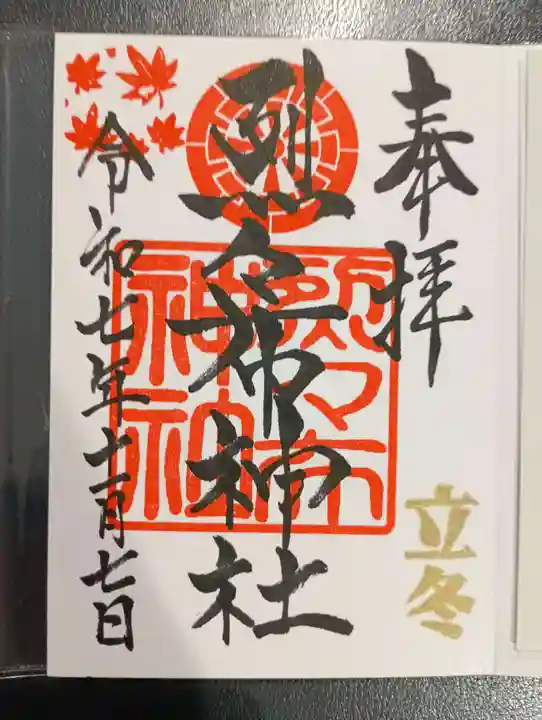 奉拝
立冬
烈々布神社
烈々布神社
令和七年十一月七日